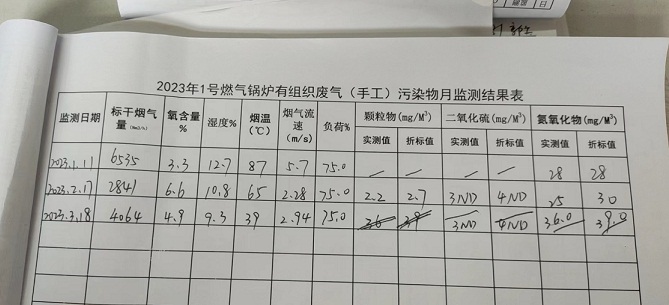 2023年1号燃气锅炉有组织废气（手工）污染物月监测结果表
监测日期 标干烟气量(Nm3/h) 氧含量% 湿度% 烟温(℃) 烟气流速(m/s) 负荷% 颗粒物(mg/M³) 二氧化硫(mg/M³) 氮氧化物(mg/M³)
实测值 折标值 实测值 折标值 实测值 折标值
2023.1.11 6535 3.3 12.7 87 5.7 75.0 / / / / 28 28
2023.2.17 2841 6.6 10.8 65 2.28 75.0 2.2 2.7 3ND 4ND 25 30
2023.3.18 4064 4.9 9.3 39 2.94 75.0 36 39 3ND 4ND 36.0 39.0